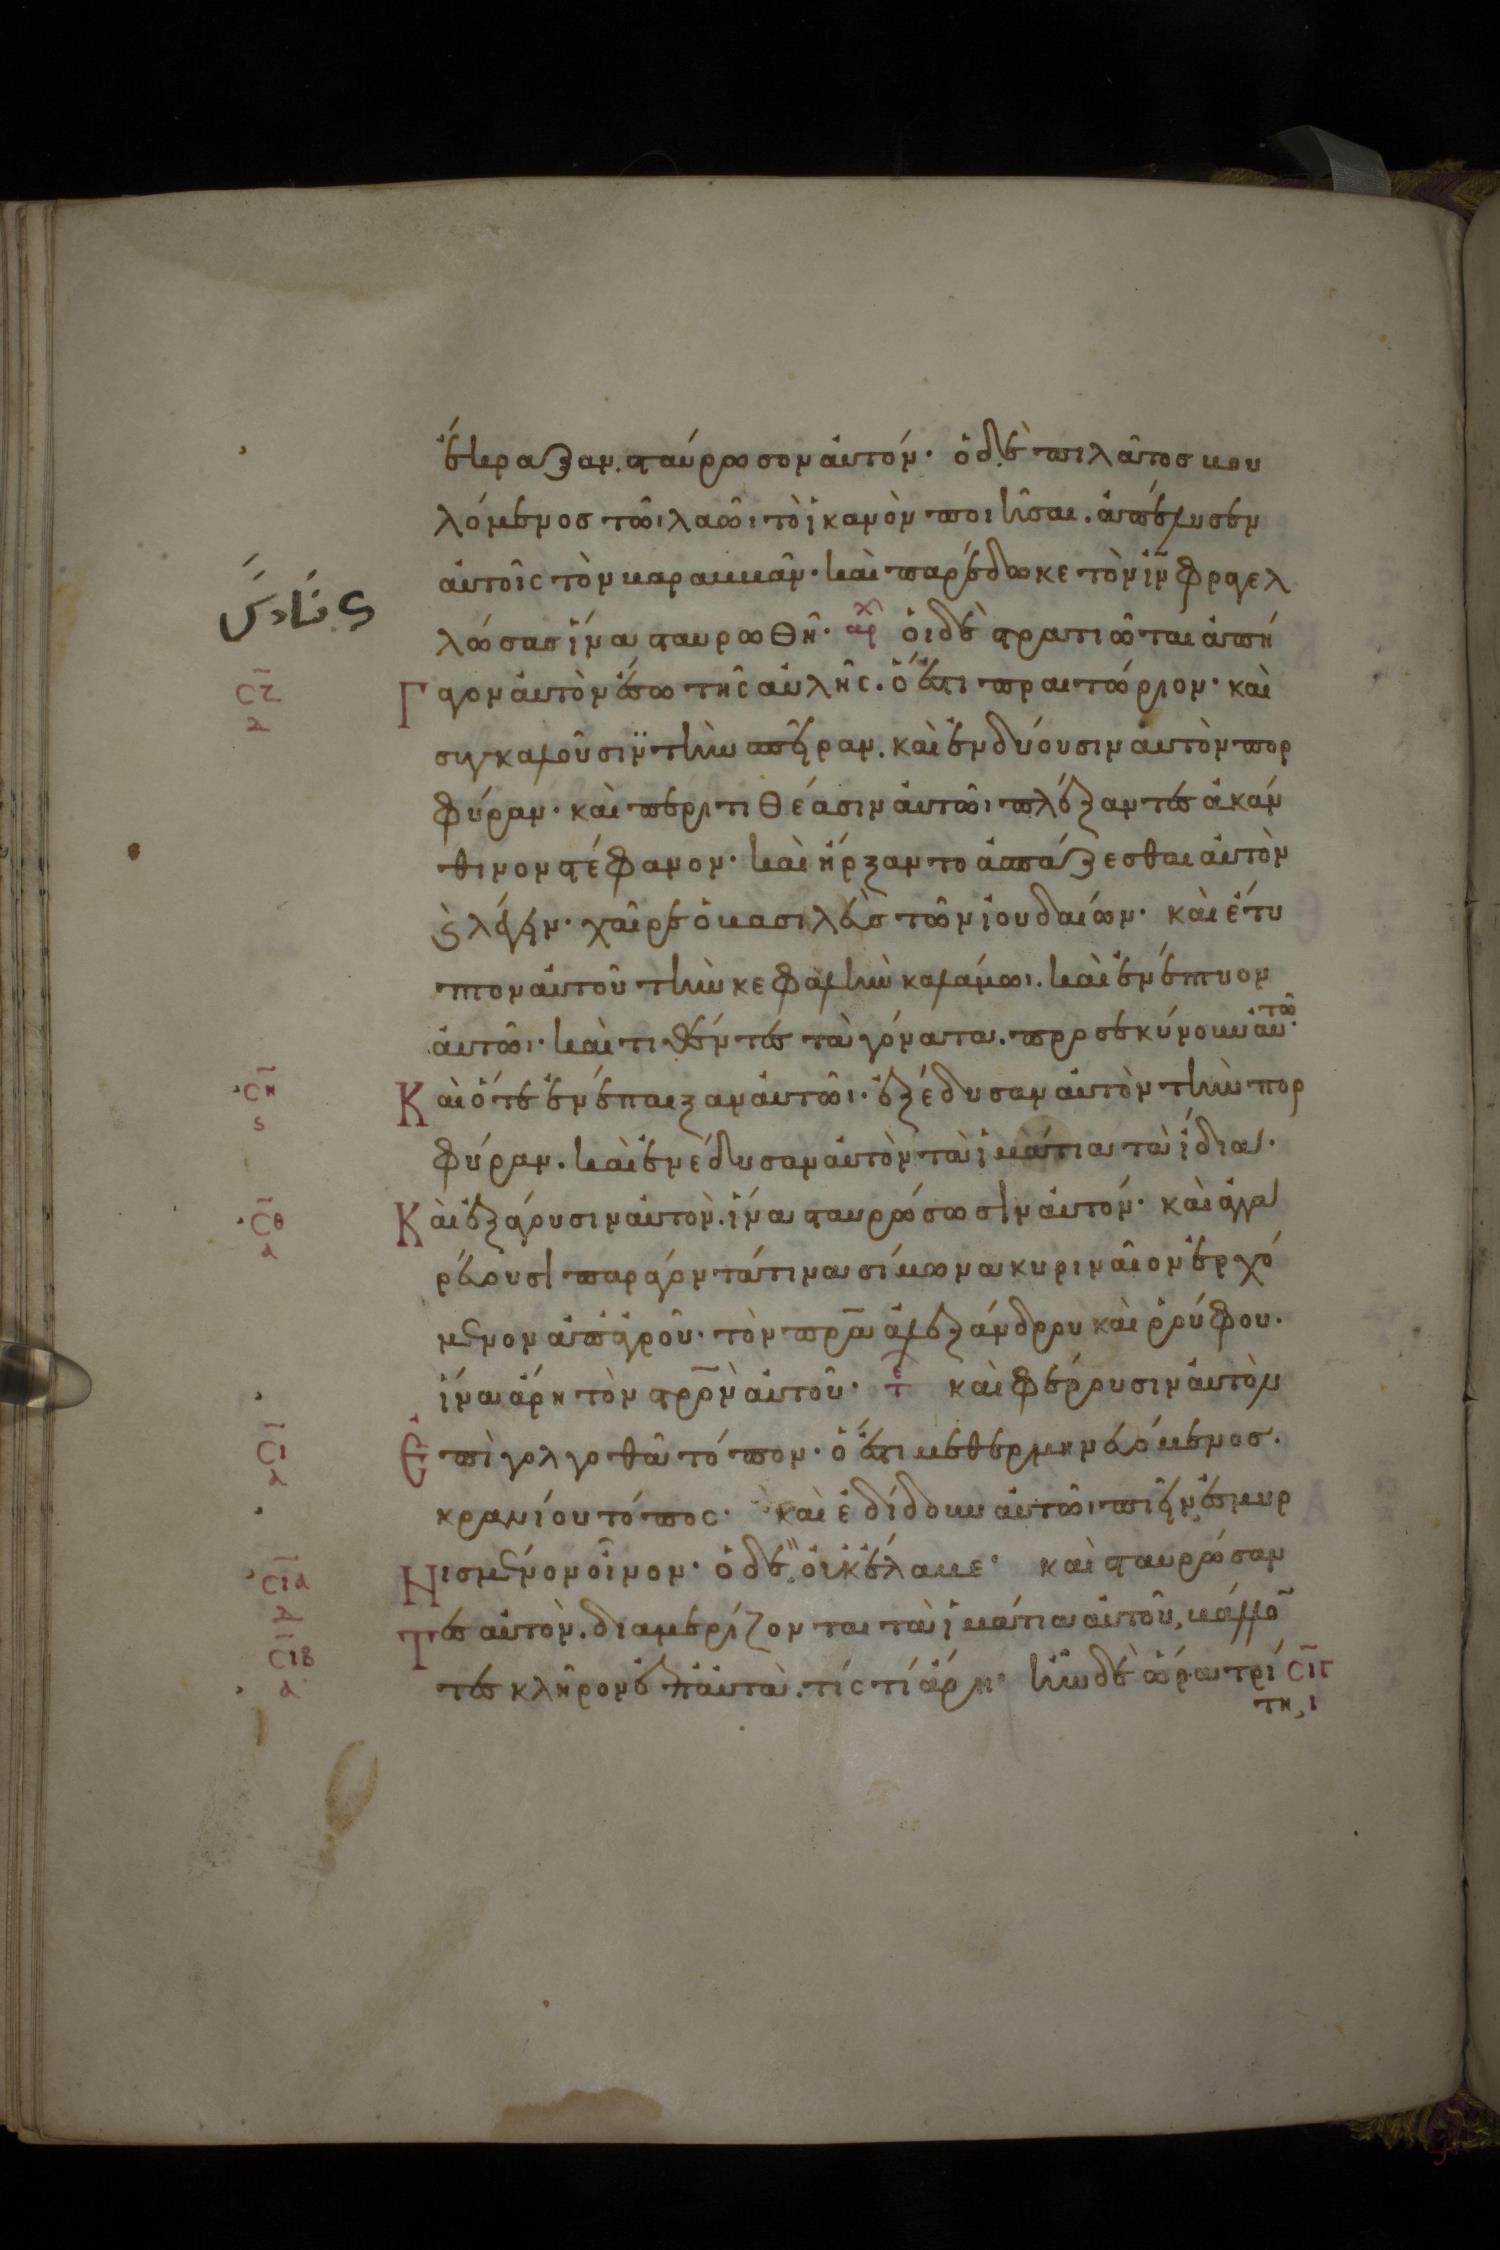 ἔκραζαν. σταύρωσον αὐτόν· ὁ δὲ πιλᾶτος βου
λόμενος τῶι λαῶι τὸ ἱκανὸν ποιῆσαι. ἀπέλυσεν
αὐτοῖς τὸν βαραββᾶν· καὶ παρέδωκε τὸν ἰν̅ φραγελ
λώσας ἵνα σταυρωθῆ· ἀρχ οἱ δὲ στρατιῶται ἀπή
σζ̅ α
Γ γον αὐτὸν ἔσω τῆς αὐλῆς. ὅ ἐστι πραιτώριον· καὶ
συγκαλοῦσιν τὴν σπεῖραν. καὶ ἐνδύουσιν αὐτὸν πορ
φύραν· καὶ περιτιθέασιν αὐτῶι πλέξαντες ἀκάν
θινον στέφανον· καὶ ἤρξαντο ἀσπάζεσθαι αὐτὸν
λέγειν· χαῖρε ὁ βασιλεὺς τῶν ἰουδαίων· καὶ ἔτυ
πτον αὐτοῦ τὴν κεφαλὴν καλάμωι. καὶ ἐνέπτυον
αὐτῶι· καὶ τιθέντες τὰ γόνατα. προσεκύνουν αὐτῶ·
ση̅ ς
Καὶ ὅτε ἐνέπαιξαν αὐτῶι· ἐξέδυσαν αὐτὸν τὴν πορ
φύραν. καὶ ἐνέδυσαν αὐτὸν τὰ ἱμάτια τὰ ἴδια·
σθ̅ α
Καὶ ἐξάγουσιν αὐτὸν. ἵνα σταυρώσωσιν αὐτόν· καὶ ἀγγα
ρεύουσι παράγοντά τινα σίμωνα κυρηναῖον ἐρχό
μενον ἀπ' ἀγροῦ· τὸν πρ̅α ἀλεξάνδρου καὶ ῥούφου·
ἵνα ἄρη τὸν στρ̅ὸν αὐτοῦ· τε καὶ φέρουσιν αὐτὸν
σι̅ α
Ἐπὶ γολγοθᾶ τόπον· ὅ ἐστι μεθερμηνευόμενος.
κρανίου τόπος· καὶ ἐδίδουν αὐτῶι πιεῖν ἐσμυρ
σια̅ δ
Νισμένον οἶνον· ὁ δὲ οὐκ ἔλαβε· καὶ σταυρώσαν
σιβ̅ α
Τες αὐτὸν. διαμερίζονται τὰ ἱμάτια αὐτοῦ, βάλλο̅
τες κλῆρον ἐπ' αὐτὰ. τίς τί ἄρη· ἦν δὲ ὥρα τρί σιγ̅
τη, ι